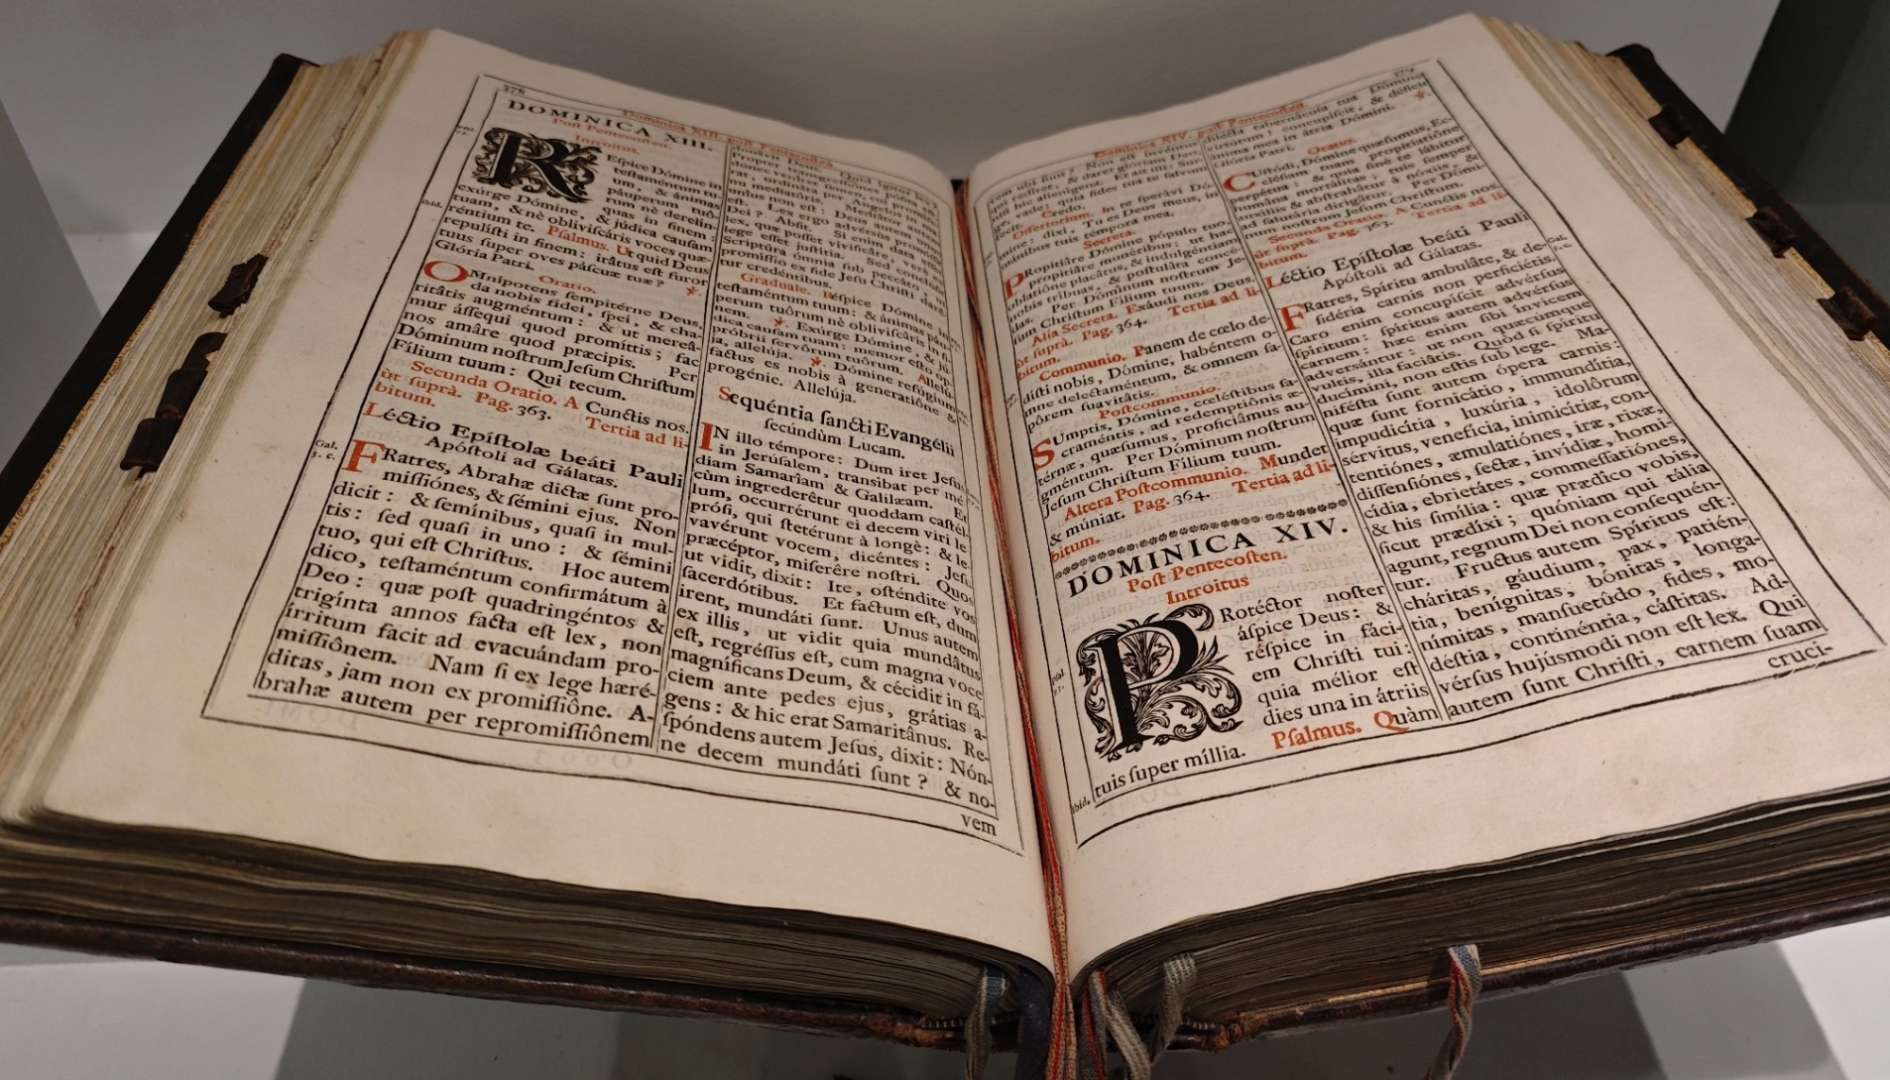 378
Dominica XIII. post Pentecosten.
DOMINICA XIII.
Post Pentecosten.
Introitus.
REſpice Dómine in
teſtaméntum tu-
um, & ánimas
páuperum tuô-
rum nè derelín-
quas in finem:
exúrge Dómine, & júdica cauſam
tuam, & nè obliviſcáris voces quæ-
réntium te. Pſalmus. Ut quid Deus
repuliſti in finem: irâtus eſt furor
tuus ſuper oves páſcuæ tuæ? ℣.
Glória Patri.
Oratio.
OMnípotens ſempitérne Deus,
da nobis fidei, ſpei, & cha-
ritâtis augméntum: & ut mereâ-
mur áſſequi quod promíttis; fac
nos amâre quod præcipis. Per
Dóminum noſtrum Jeſum Chriſtum
Fílium tuum: Qui tecum.
Secunda Oratio. A Cunctis nos.
ùt ſuprà. Pag. 363. Tertia ad li-
bitum.
Léctio Epíſtolæ beáti Pauli
Apóſtoli ad Gálatas.
Gal.
3. c.
FRatres, Abrahæ dictæ ſunt pro-
miſſiónes, & ſémini ejus. Non
dicit: & ſemínibus, quaſi in mul-
tis: ſed quaſi in uno: & ſémini
tuo, qui eſt Chriſtus. Hoc autem
dico, teſtaméntum confirmátum à
Deo: quæ poſt quadringéntos &
trigínta annos facta eſt lex, non
írritum facit ad evacuándam pro-
miſſiônem. Nam ſi ex lege hæré-
ditas, jam non ex promiſſiône. A-
brahæ autem per repromiſſiônem
donâvit Deus. Quid igitur lex?
Propter tranſgreſſiónes
donec veníret ſemen, cui promíſe-
rat, ordináta per Angelos in
manu mediatóris. Mediâtor autem
unius non eſt: Deus autem unus
eſt. Lex ergo advérſus promíſſa
Dei? Abſit. Si enim data eſſet
lex, quæ poſſet vivificáre, verè ex
lege eſſet juſtítia. Sed conclúſit
Scriptûra ómnia ſub peccáto, ut
promíſſio ex fide Jeſu Chriſti darê-
tur credéntibus.
Graduale. Réſpice Dómine in
teſtaméntum tuum: & ánimas páu-
perum tuôrum nè obliviſcâris in fi-
nem. ℣. Exúrge Dómine, & jú-
dica cauſam tuam: memor eſto op-
próbrii ſervôrum tuôrum. Allelú-
ja, allelúja. ℣. Dómine refúgium
factus es nobis à generatiône &
progénie. Allelúja.
Sequéntia ſancti Evangélii
ſecúndùm Lucam.
IN illo témpore: Dum iret Jeſus
in Jerúſalem, tranſibat per mé-
diam Samaríam & Galilæam. Et
cùm ingrederêtur quoddam caſtél-
lum, occurrérunt ei decem viri le-
próſi, qui ſtetérunt à longè: & le-
vavérunt vocem, dicéntes: Jeſu
præcéptor, miſerêre noſtri. Quos
ut vidit, dixit: Ite, oſténdite vos
ſacerdótibus. Et factum eſt, dum
irent, mundáti ſunt. Unus autem
ex illis, ut vidit quia mundâtus
eſt, regréſſus eſt, cum magna voce
magníficans Deum, & cécidit in fá-
ciem ante pedes ejus, grátias a-
gens: & hic erat Samaritânus. Re-
ſpóndens autem Jeſus, dixit: Nón-
ne decem mundáti ſunt? & no-
vem
Dominica XIV. poſt Pentecoſten.
379
vem ubi ſunt? Non eſt invéntus
qui redíret, & daret glóriam Deo,
niſi hic alienígena. Et ait illi: Sur-
ge, vade; quia fides tua te ſalvum
fecit. Credo.
Offertorium. In te ſperávi Dó-
mine: dixi, Tu es Deus meus, in
mánibus tuis témpora mea.
Secreta.
PRopitiâre Dómine pópulo tuo,
propitiâre munéribus: ut hac
oblatiône placâtus, & indulgéntiam
nobis tríbuas, & poſtuláta concé-
das. Per Dóminum noſtrum Je-
ſum Chriſtum Fílium tuum.
Alia Secreta. Exáudi nos Deus.
ùt ſuprà. Pag. 364. Tertia ad li-
bitum.
Communio. Panem de cœlo de-
diſti nobis, Dómine, habéntem o-
mne delectaméntum, & omnem ſa-
pôrem ſuavitâtis.
Poſtcommunio.
SUmptis, Dómine, cæléſtibus ſa-
craméntis, ad redemptiônis æ-
térnæ, quæſumus, proficiâmus au-
gméntum. Per Dóminum noſtrum
Jeſum Chriſtum Fílium tuum.
Altera Poſtcommunio. Mundet
& múniat. Pag. 364. Tertia ad li-
bitum.
DOMINICA XIV.
Poſt Pentecoſten.
Introitus
PRotéctor noſter
áſpice Deus: &
réſpice in fáci-
em Chriſti tui:
quia mélior eſt
dies una in átriis
tuis ſuper míllia. Pſalmus. Quàm
Ibid.
dilécta tabernácula tua Dómine
virtútum! concupíſcit, & déficit
ánima mea in átria Dómini. ℣.
Glória Patri.
Oratio.
CUſtódi, Dómine quæſumus, Ec-
cléſiam tuam propitiatióne
perpétua: & quia ſinè te lábitur
humâna mortálitas; tuis ſemper
auxíliis & abſtrahátur à nóxiis, &
ad ſalutária dirigátur. Per Dómi-
num noſtrum Jeſum Chriſtum.
Secunda Oratio. A Cunctis nos.
ùt ſuprà. Pag. 363. Tertia ad li-
bitum.
Léctio Epíſtolæ beáti Pauli
Apóſtoli ad Gálatas.
Gal.
5. c.
FRatres, Spíritu ambuláte, & de-
ſidéria carnis non perficiétis.
Caro enim concupíſcit advérſus
ſpíritum: ſpíritus autem advérſus
carnem: hæc enim ſibi ínvicem
adverſántur: ut non quæcúmque
vultis, illa faciátis. Quòd ſi ſpíritu
ducímini, non eſtis ſub lege. Ma-
nifeſta ſunt autem ópera carnis:
quæ ſunt fornicátio, immundítia,
impudicítia, luxúria, idolôrum
sérvitus, veneficia, inimicítiæ, con-
tentiónes, æmulatiónes, iræ, rixæ,
diſſenſiónes, ſectæ, invídiæ, homi-
cídia, ebrietátes, commeſſatiónes,
& his ſimília: quæ prædíco vobis,
ſicut prædíxi; quóniam qui tália
agunt, regnum Dei non conſequén-
tur. Fructus autem Spíritus eſt:
cháritas, gáudium, pax, patién-
tia, benígnitas, bónitas, longa-
nímitas, manſuetûdo, fides, mo-
déſtia, continéntia, cáſtitas. Ad-
vérſus hujúſmodi non eſt lex. Qui
autem ſunt Chriſti, carnem ſuam
cruci-